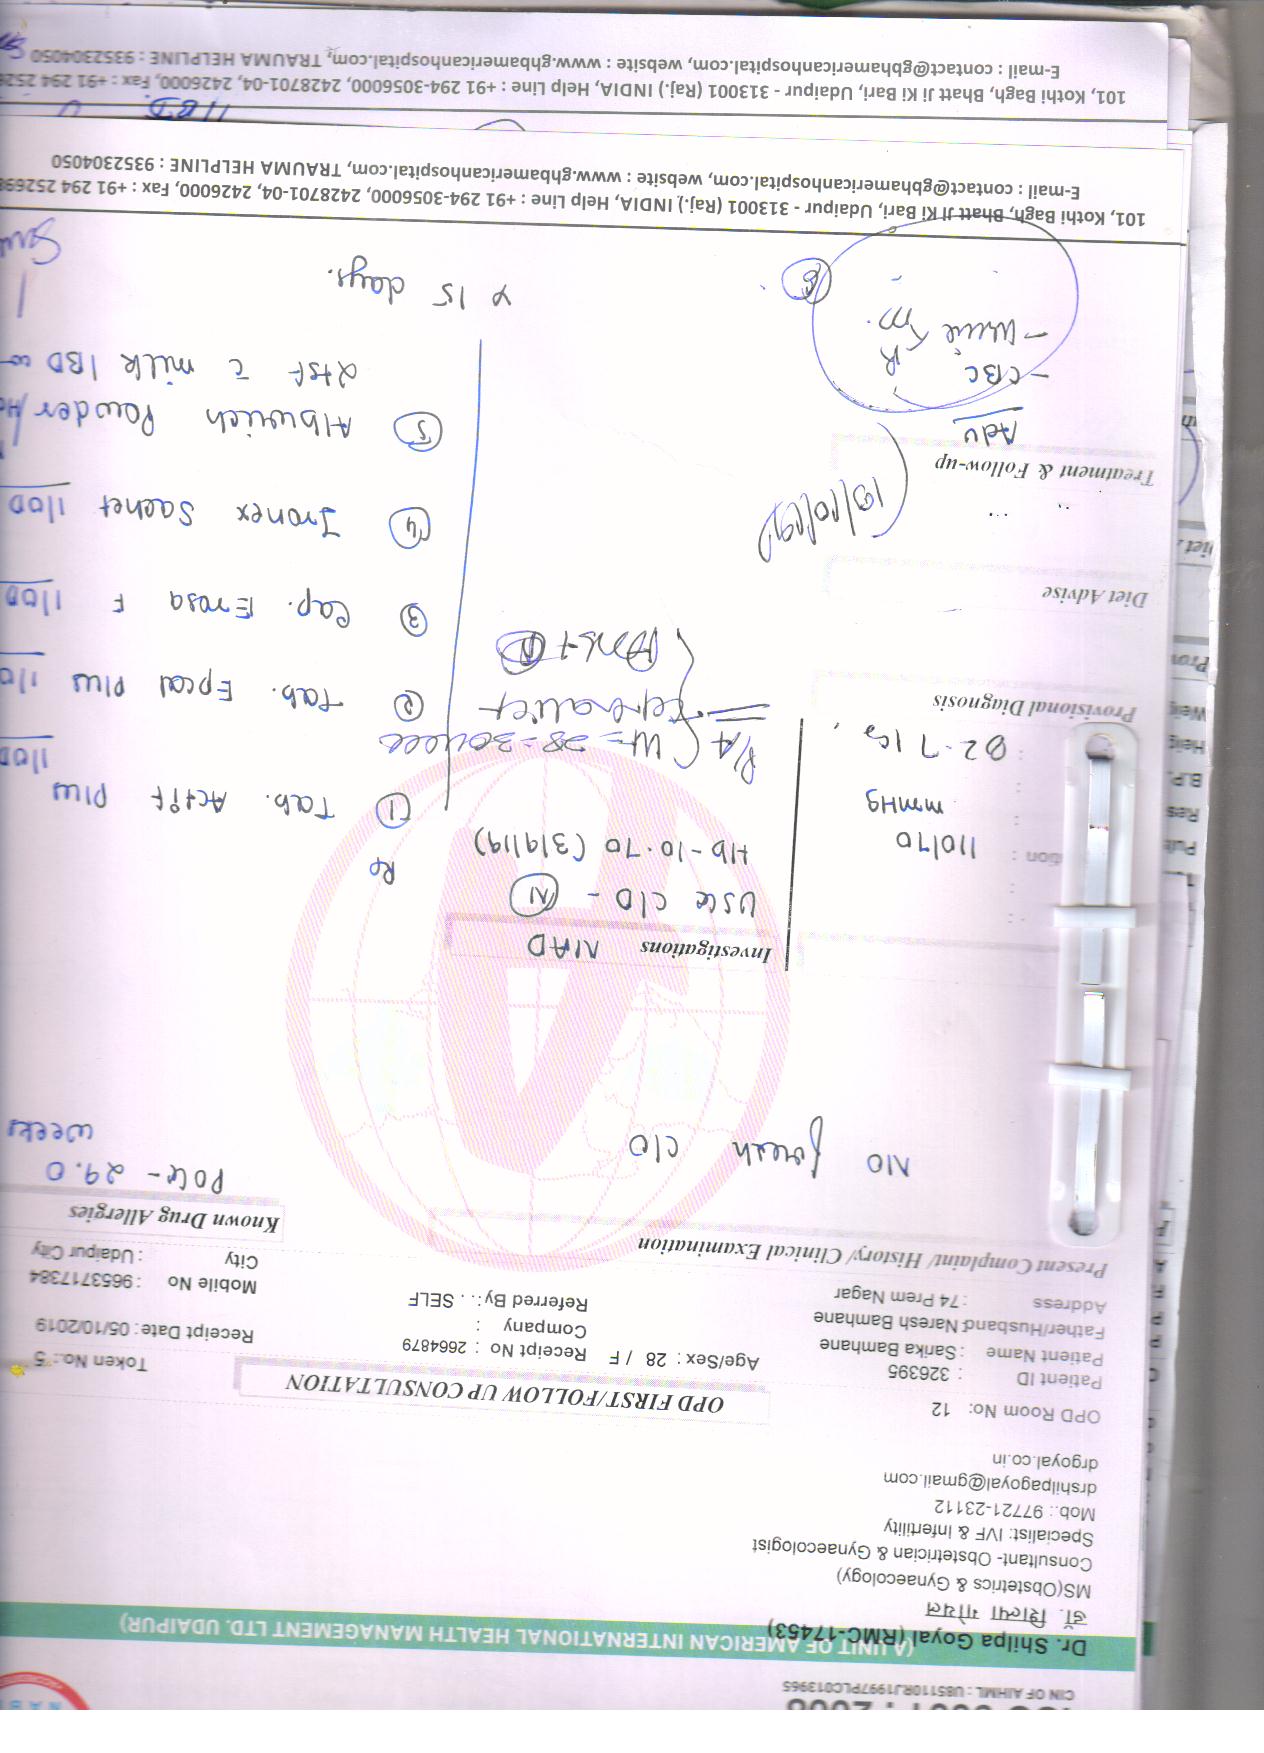 CIN OF AIHML : U85110RJ1997PLC013965
(A UNIT OF AMERICAN INTERNATIONAL HEALTH MANAGEMENT LTD. UDAIPUR)
Dr. Shilpa Goyal (RMC-17453)
डॉ. शिल्पा गोयल
MS(Obstetrics & Gynaecology)
Consultant- Obstetrician & Gynaecologist
Specialist: IVF & Infertility
Mob.: 97721-23112
drshilpagoyal@gmail.com
drgoyal.co.in
OPD Room No: 12
OPD FIRST/FOLLOW UP CONSULTATION
Token No.: 5
Patient ID : 326395
Patient Name : Sarika Bamhane
Age/Sex : 28 / F
Receipt No : 2664879
Receipt Date : 05/10/2019
Father/Husband : Naresh Bamhane
Company :
Mobile No : 9653717384
Address : 74 Prem Nagar
Referred By : . . SELF
City : Udaipur City
Present Complaint/ History/ Clinical Examination
Known Drug Allergies
POG - 29.0
weeks
No fresh c/o
Investigations NAD
USG c/o - N
Hb - 10.70 (3/9/19)
110/70
mmHg
P/A
28-30 weeks
82.7 kg
Provisional Diagnosis
Diet Advise
Treatment & Follow-up
19/10/19
Adv
- CBC
- Urine R
M
Rp
1 Tab. Actif Plus 1 OD
2 Tab. Epcal Plus
3 Cap. Erosa F 1 OD
4 Ironex Sachet 1 OD
5 Alburich Powder
2tsf c milk 1BD
x 15 days.
101, Kothi Bagh, Bhatt Ji Ki Bari, Udaipur - 313001 (Raj.) INDIA, Help Line : +91 294-3056000, 2428701-04, 2426000, Fax : +91 294 25269
E-mail : contact@gbhamericanhospital.com, website : www.gbhamericanhospital.com, TRAUMA HELPLINE : 9352304050
101, Kothi Bagh, Bhatt Ji Ki Bari, Udaipur - 313001 (Raj.) INDIA, Help Line : +91 294-3056000, 2428701-04, 2426000, Fax : +91 294 2526
E-mail : contact@gbhamericanhospital.com, website : www.gbhamericanhospital.com, TRAUMA HELPLINE : 9352304050